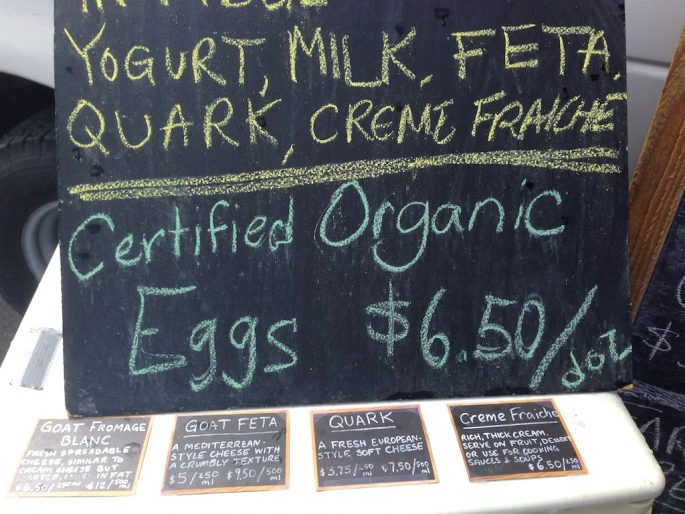 IN FRIDGE
YOGURT, MILK, FETA,
QUARK, CREME FRAICHE
Certified Organic
Eggs $6.50/doz
GOAT FROMAGE
BLANC
FRESH SPREADABLE
CHEESE, SIMILAR TO
CREAM CHEESE BUT
IN FAT
$6.50/250 ml $12/500 ml
GOAT FETA
A MEDITERREAN-
STYLE CHEESE WITH
A CRUMBLY TEXTURE
$5/250 ml $9.50/500 ml
QUARK
A FRESH EUROPEAN-
STYLE SOFT CHEESE
$3.75/250 ml $7.50/500 ml
Creme Fraiche
RICH, THICK CREAM.
SERVE ON FRUIT, DESSERT
OR USE FOR COOKING
SAUCES & SOUPS
$6.50/250 ml
$